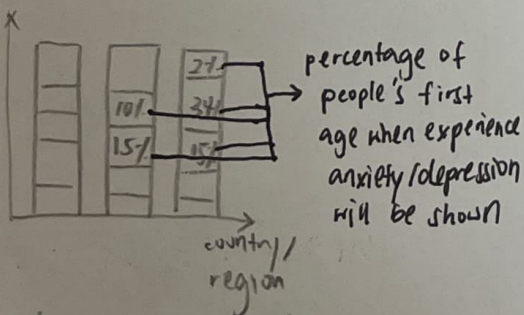 X
2%
10%
3%
15%
15%
percentage of
people's first
age when experience
anxiety/depression
will be shown
country/
region